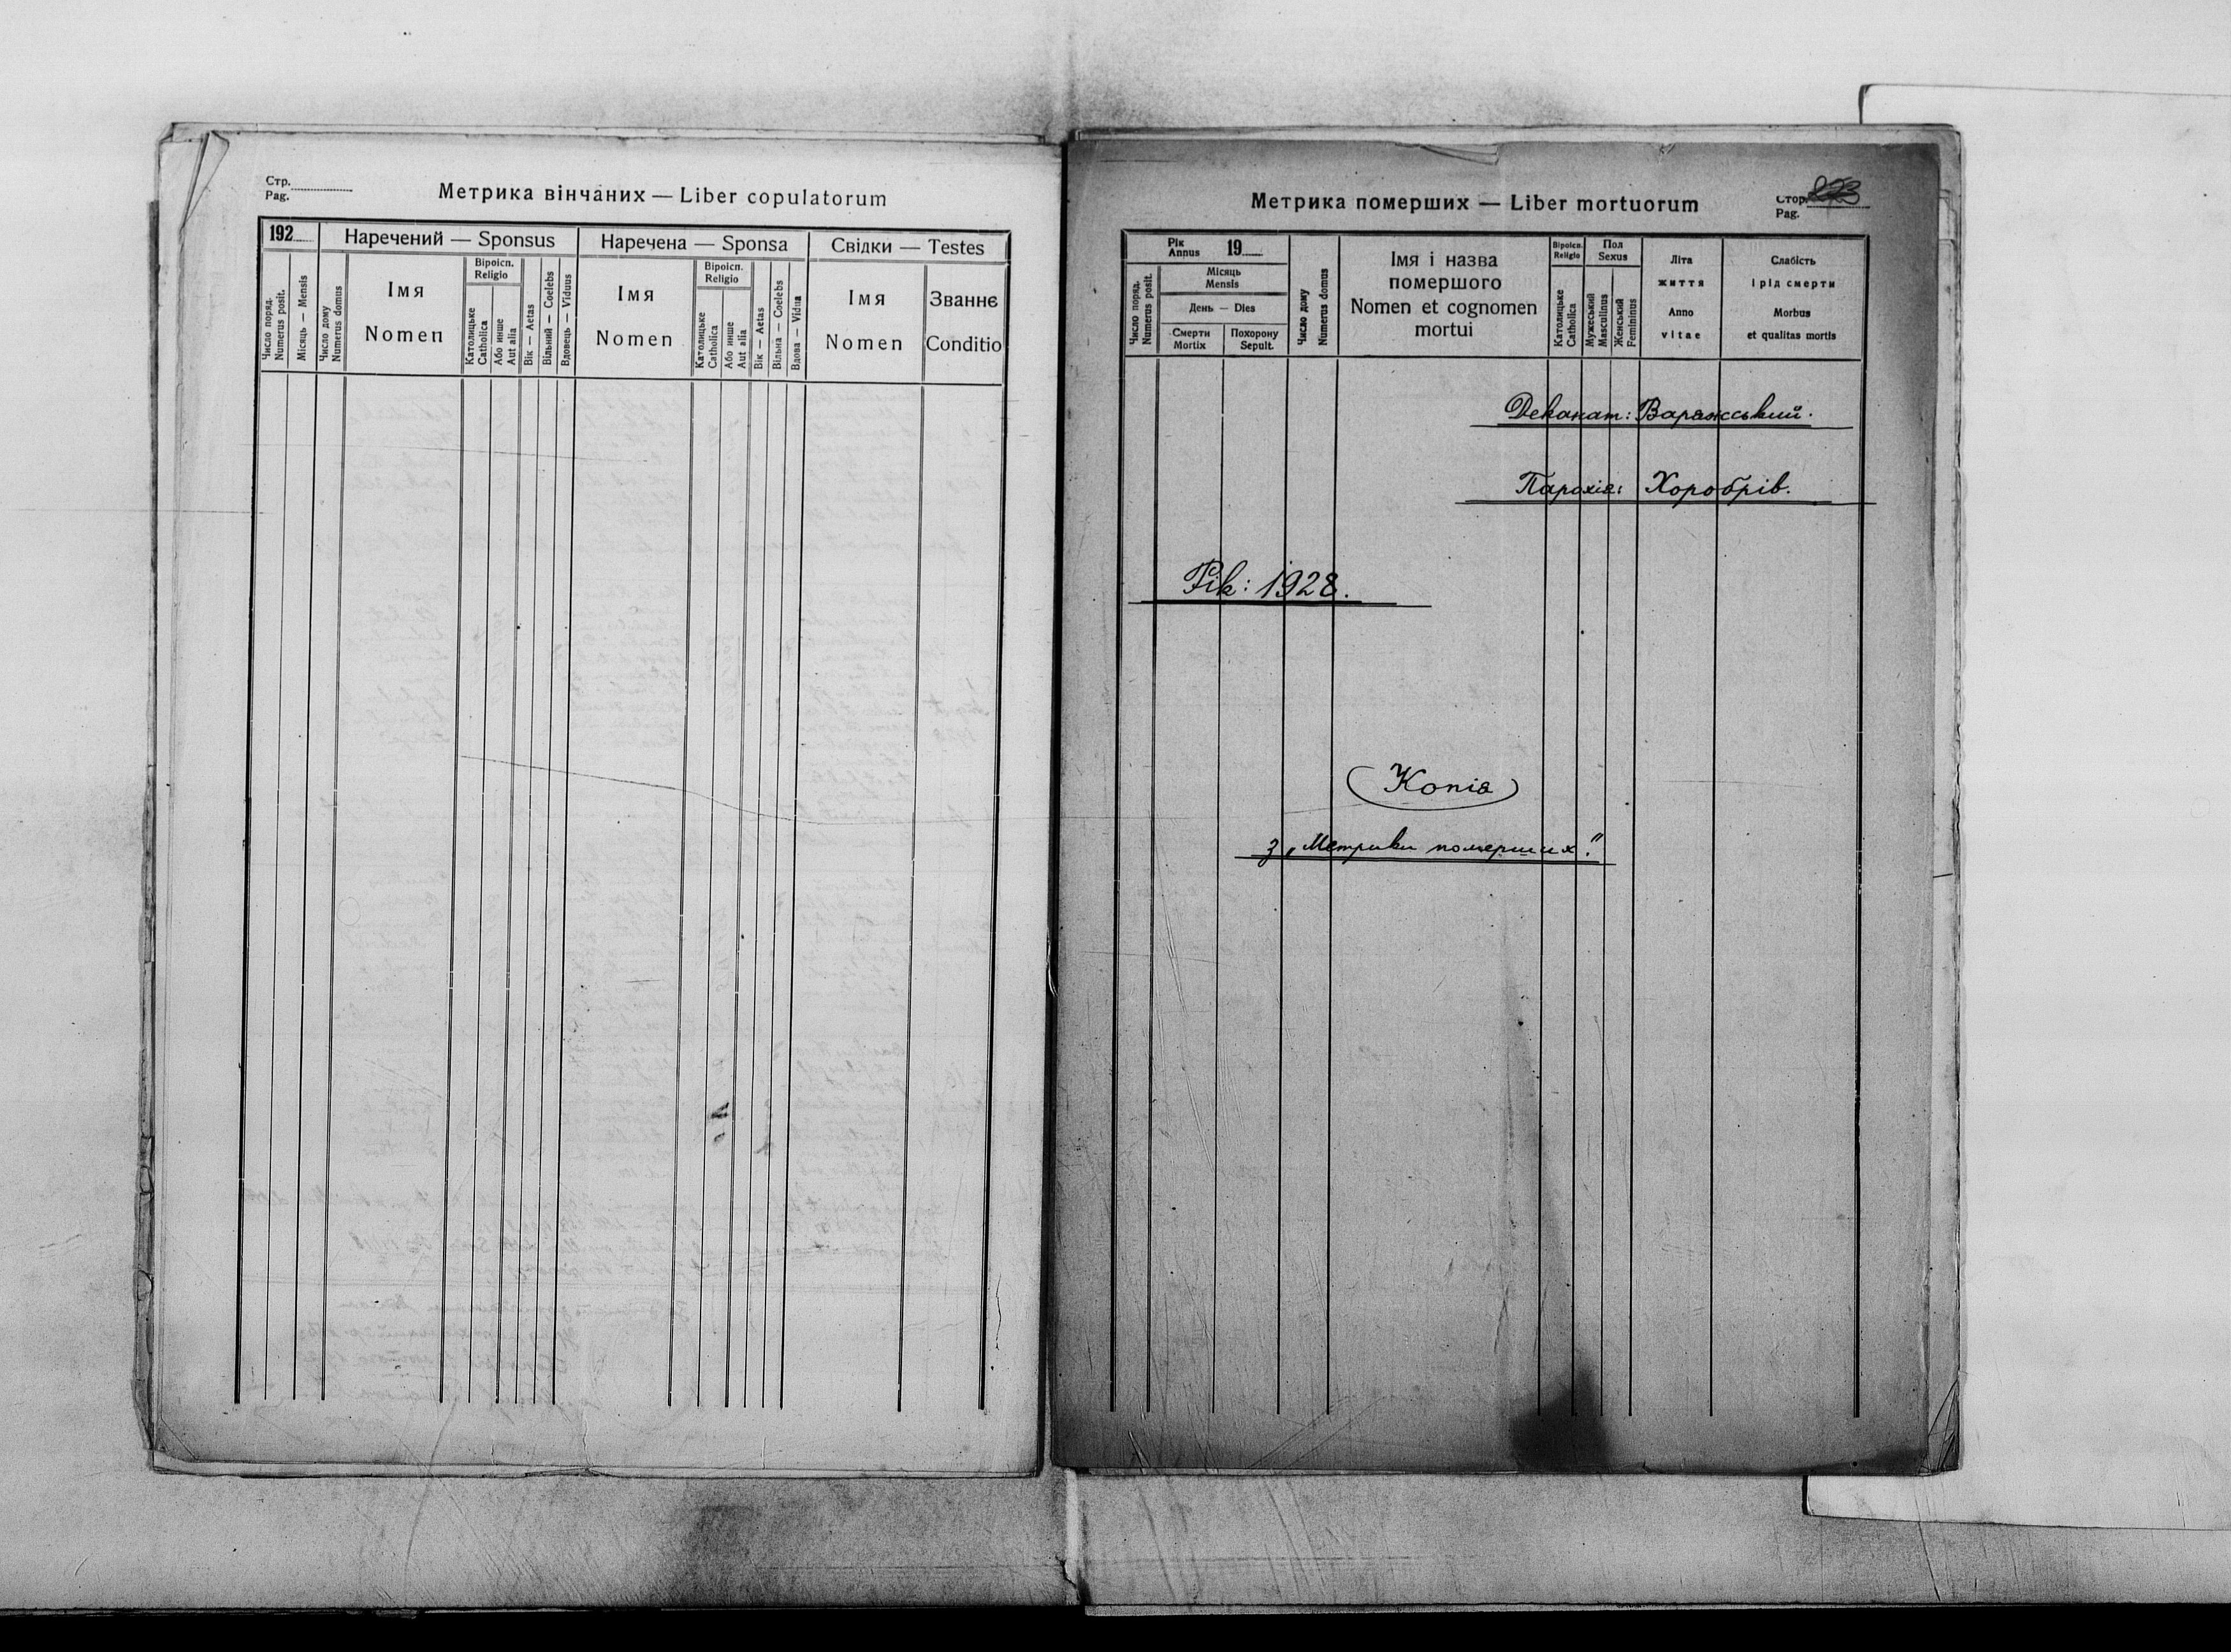 Стр.
Pag.
Метрика вінчаних — Liber copulatorum
192
Наречений — Sponsus
Наречена — Sponsa
Свідки — Testes
Число поряд.
Numerus posit.
Місяць — Mensis
Число дому
Numerus domus
Імя
Nomen
Віроісп.
Religio
Католицьке
Catholica
Або инше
Aut alia
Вік — Aetas
Вільний — Coelebs
Вдовець — Viduus
Імя
Nomen
Віроісп.
Religio
Католицьке
Catholica
Або инше
Aut alia
Вік — Aetas
Вільна — Coelebs
Вдова — Vidua
Імя
Nomen
Званнє
Conditio
Метрика померших — Liber mortuorum
Стор.
Pag.
Рік
Annus
19
Число поряд.
Numerus posit.
Місяць
Mensis
День — Dies
Смерти
Mortix
Похорону
Sepult.
Число дому
Numerus domus
Імя і назва
помершого
Nomen et cognomen
mortui
Віроісп.
Religio
Католицьке
Catholica
Пол
Sexus
Мужеський
Masculinus
Женський
Femininus
Літа
життя
Anno
vitae
Слабість
і рід смерти
Morbus
et qualitas mortis
Деканат: Варяжський.
Парохія: Хоробрів.
Рік: 1928.
Копія
з „Метрики померших."